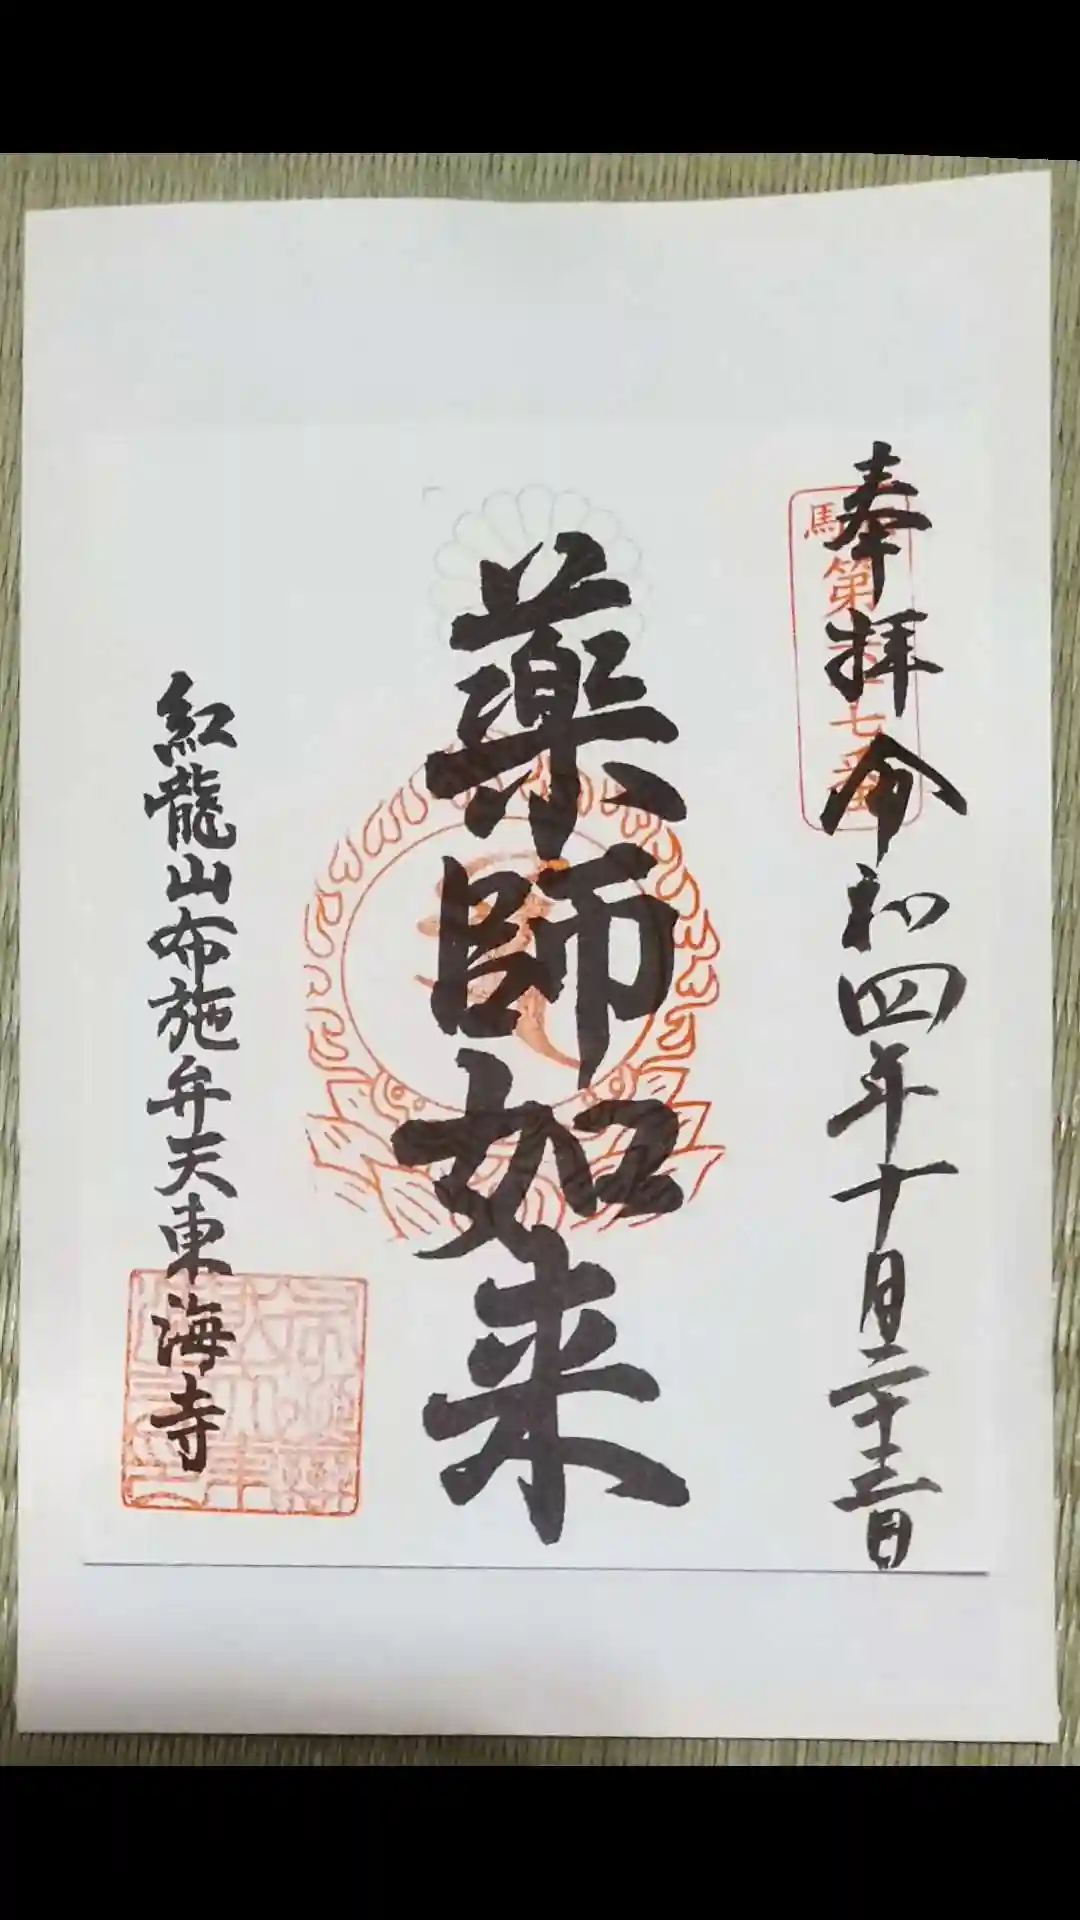 奉拝 令和四年十月二十三日
薬師如来
紅龍山布施弁天東海寺